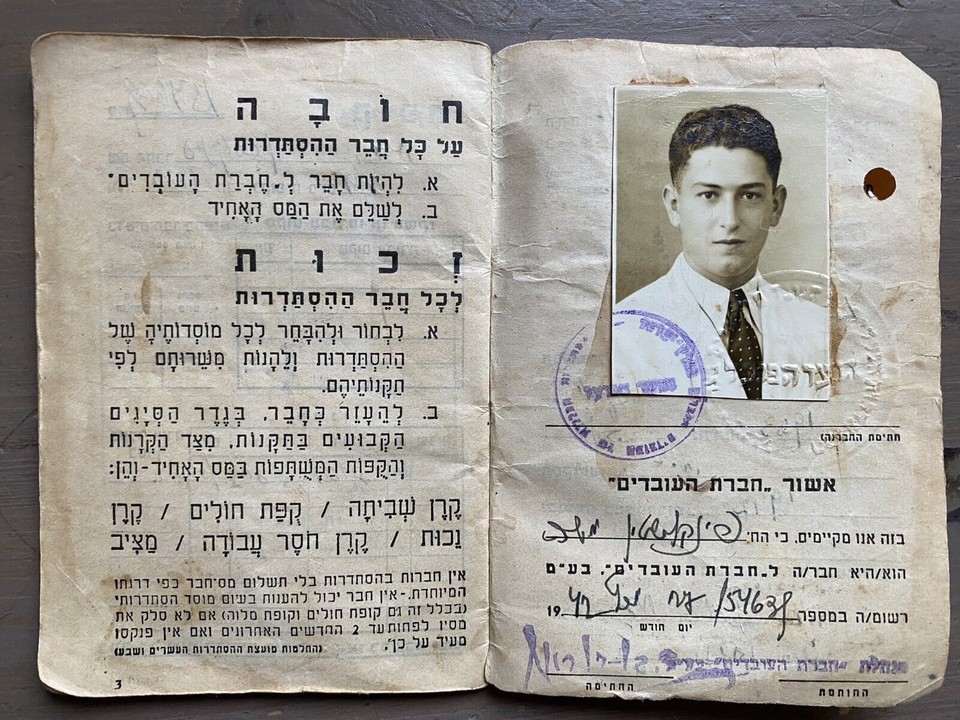 חוֹבָה
עַל כָּל חֲבֵר הַהִסְתַּדְרוּת
א. לִהְיוֹת חָבֵר לְ„חֶבְרַת הָעוֹבְדִים"
ב. לְשַׁלֵּם אֶת הַמַּס הָאָחִיד
זְכוּת
לְכָל חֲבֵר הַהִסְתַּדְרוּת
א. לִבְחוֹר וּלְהִבָּחֵר לְכָל מוֹסְדוֹתֶיהָ שֶׁל
הַהִסְתַּדְרוּת וְלֵהָנוֹת מִשֵּׁרוּתָם לְפִי
תַקָּנוֹתֵיהֶם.
ב. לְהֵעָזֵר כְּחָבֵר, בְּגֶדֶר הַסְּיָגִים
הַקְּבוּעִים בַּתַּקָּנוֹת, מִצַּד הַקְּרָנוֹת
וְהַקֻּפּוֹת הַמְשֻׁתָּפוֹת בַּמַּס הָאָחִיד-וְהֵן:
קֶרֶן שְׁבִיתָה / קֻפַּת חוֹלִים / קֶרֶן
נָכוּת / קֶרֶן חֹסֶר עֲבוֹדָה / מַצִּיב
אין חברות בהסתדרות בלי תשלום מס־חבר כפי דרגתו
המיוחדת. - אין חבר יכול להענות בשום מוסד הסתדרותי
(בכלל זה גם קופת חולים וקופת מלוה) אם לא סלק את
מסיו לפחות עד 2 החדשים האחרונים ואם אין פנקסו
מעיד על כך. (החלטות מועצת ההסתדרות העשרים ושבע)
3
חתימת החבר/ה
אשור „חברת העובדים"
בזה אנו מקיימים, כי החי פינקלשטין
הוא/היא חבר/ה ל„חברת העובדים", בע"מ
רשום/ה במספר 54637 19
יום חודש
מנהלת "חברת העובדים" בע"מ
החתימה החותמת